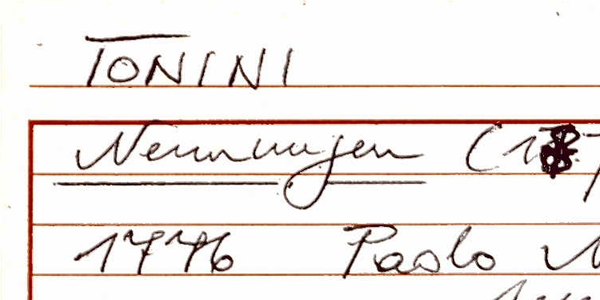 TONINI
Nennungen (1
1776 Paolo